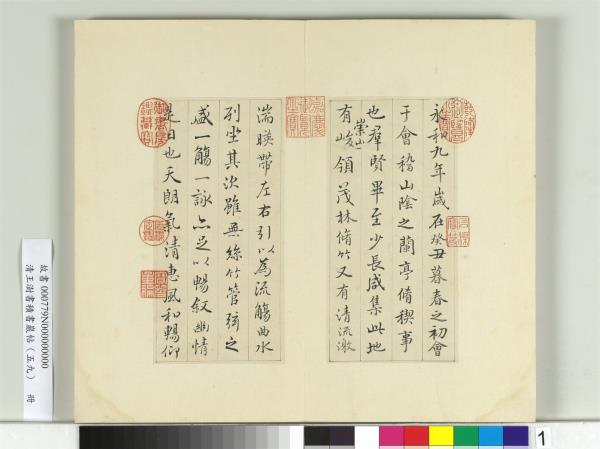 永和九年歲在癸丑暮春之初會
于會稽山陰之蘭亭脩稧事
也羣賢畢至少長咸集此地
有崇山峻領茂林脩竹又有清流激
湍暎帶左右引以為流觴曲水
列坐其次雖無絲竹管弦之
盛一觴一詠亦足以暢叙幽情
是日也天朗氣清惠風和暢仰
故書 000779N000000000
清王澍書積書巖帖(五九) 冊
1